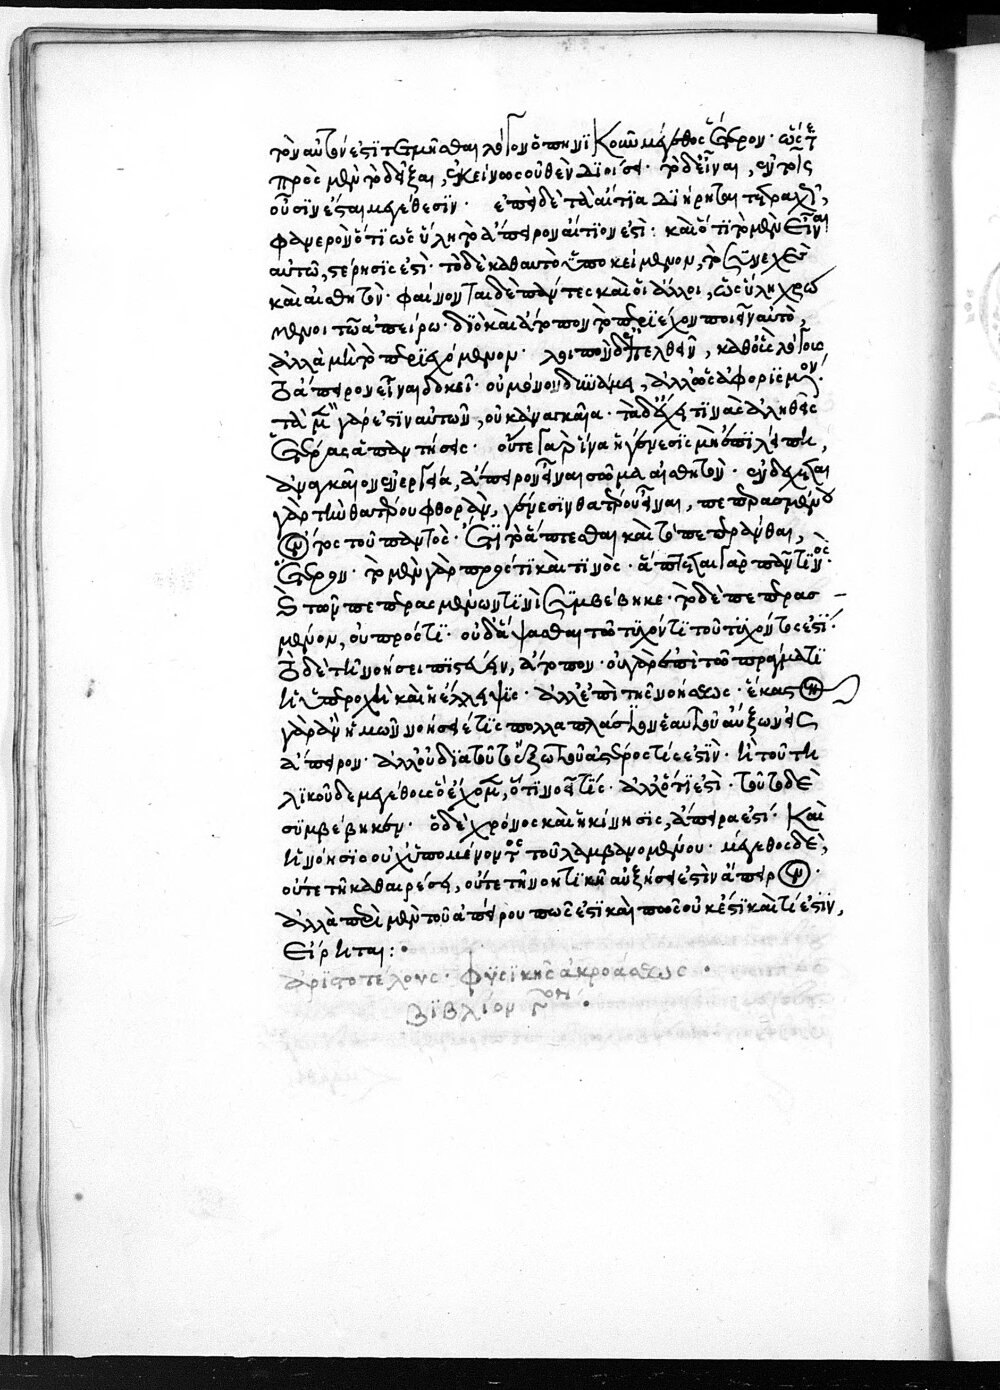 τὸν αὐτόν ἐστι τεμῆσθαι λόγον ὁπηνικοῦν μέγεθος ἕτερον· ὥστε
πρὸς μὲν τὸ δεῖξαι, ἐκείνως οὐθὲν διοίσει· τὸ δ' εἶναι, ἐν τοῖς
οὖσιν ἔσται μεγέθεσιν· ἐπεὶ δὲ τὰ αἴτια διήρηται τετραχῆ,
φανερὸν ὅτι ὡς ὕλη τὸ ἄπειρον αἴτιον ἐστί: καὶ ὅτι τὸ μὲν εἶναι
αὐτῶ, στέρησις ἐστί· τὸ δὲ καθ αὑτὸ ὑποκείμενον, τὸ συνεχὲς
καὶ αἰσθητόν· φαίνονται δὲ πάντες καὶ οἱ ἄλλοι, ὡς ὕλη χρώ
μενοι τῶ ἀπείρω· διὸ καὶ ἄτοπον τὸ περιέχον ποιεῖν αὐτὸ,
ἀλλὰ μὴ τὸ περιεχόμενον· λοιπὸν δ' ἐπελθεῖν, καθ' οὓς λόγους
τὸ ἄπειρον εἶναι δοκεῖ· οὐ μόνον δυνάμει, ἀλλ' ὡς ἀφορισμένον·
τὰ μὲν γάρ ἐστιν αὐτῶν, οὐκ ἀναγκαῖα· τὰ δ' ἔχει τινὰς ἀληθεῖς
ἑτέρας ἀπαντήσεις· οὔτε γὰρ ἵνα ἡ γένεσις μὴ ἐπιλείπη,
ἀναγκαῖον ἐνεργεία, ἄπειρον εἶναι σῶμα αἰσθητόν· ἐνδέχεται
γὰρ τὴν θατέρου φθορὰν, γένεσιν θατέρου εἶναι, πεπερασμένου
ὄντος τοῦ παντός· ἔτι τὸ ἅπτεσθαι καὶ τὸ πεπεράνθαι,
ἕτερον· τὸ μὲν γὰρ πρός τι καὶ τινός· ἅπτεται γὰρ πᾶν τινός·
καὶ τῶν πεπερασμένων τινὶ συμβέβηκε· τὸ δὲ πεπερασ
μένον, οὐ πρός τι· οὐδ' ἅψασθαι τῶ τυχόντι τοῦ τυχόντος ἐστί·
τὸ δὲ τῆ νοήσει πιστεύειν, ἄτοπον· οὐ γὰρ ἐπὶ τοῦ πράγματος
ἡ ὑπεροχὴ καὶ ἡ ἔλλειψις· ἀλλ' ἐπὶ τῆς νοήσεως· ἕκαστον
γὰρ ἂν ἡμῶν νοήσειέ τις πολλαπλάσιον ἑαυτοῦ αὔξων εἰς
ἄπειρον· ἀλλ' οὐ διὰ τοῦτο ἔξω τοῦ ἄστεός τίς ἐστιν· ἢ τοῦ τη
λικοῦδε μεγέθους ὃ ἔχομεν, ὅτι νοεῖ τίς· ἀλλ' ὅτι ἐστί· τοῦτο δὲ
συμβέβηκεν· ὁ δὲ χρόνος καὶ ἡ κίνησις, ἄπειρα ἐστί· καὶ
ἡ νόησις οὐχ ὑπομένοντος τοῦ λαμβανομένου· μέγεθος δὲ,
οὔτε τῆ καθαιρέσει, οὔτε τῆ νοητικῆ αὐξήσει ἐστὶν ἄπειρον·
ἀλλὰ περὶ μὲν τοῦ ἀπείρου πῶς ἐστὶ καὶ πῶς οὐκ ἔστι καὶ τί ἐστίν,
εἴρηται:·
ἀριστοτέλους· φυσικῆς ἀκροάσεως ·
βιβλίον γ^ον ·